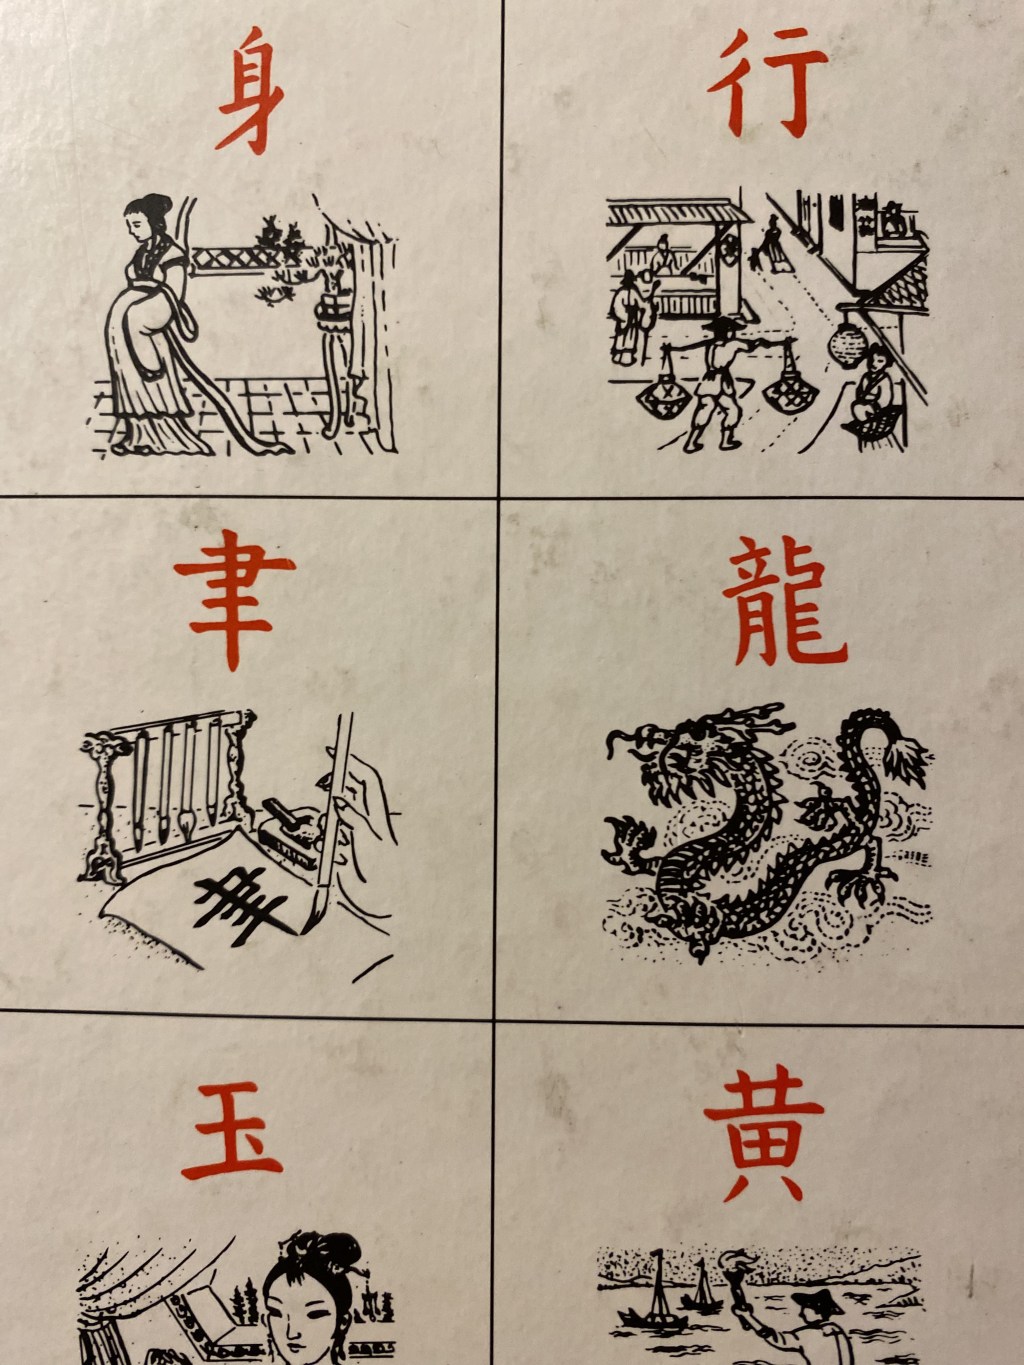 身 行
聿 龍
聿
玉 黄